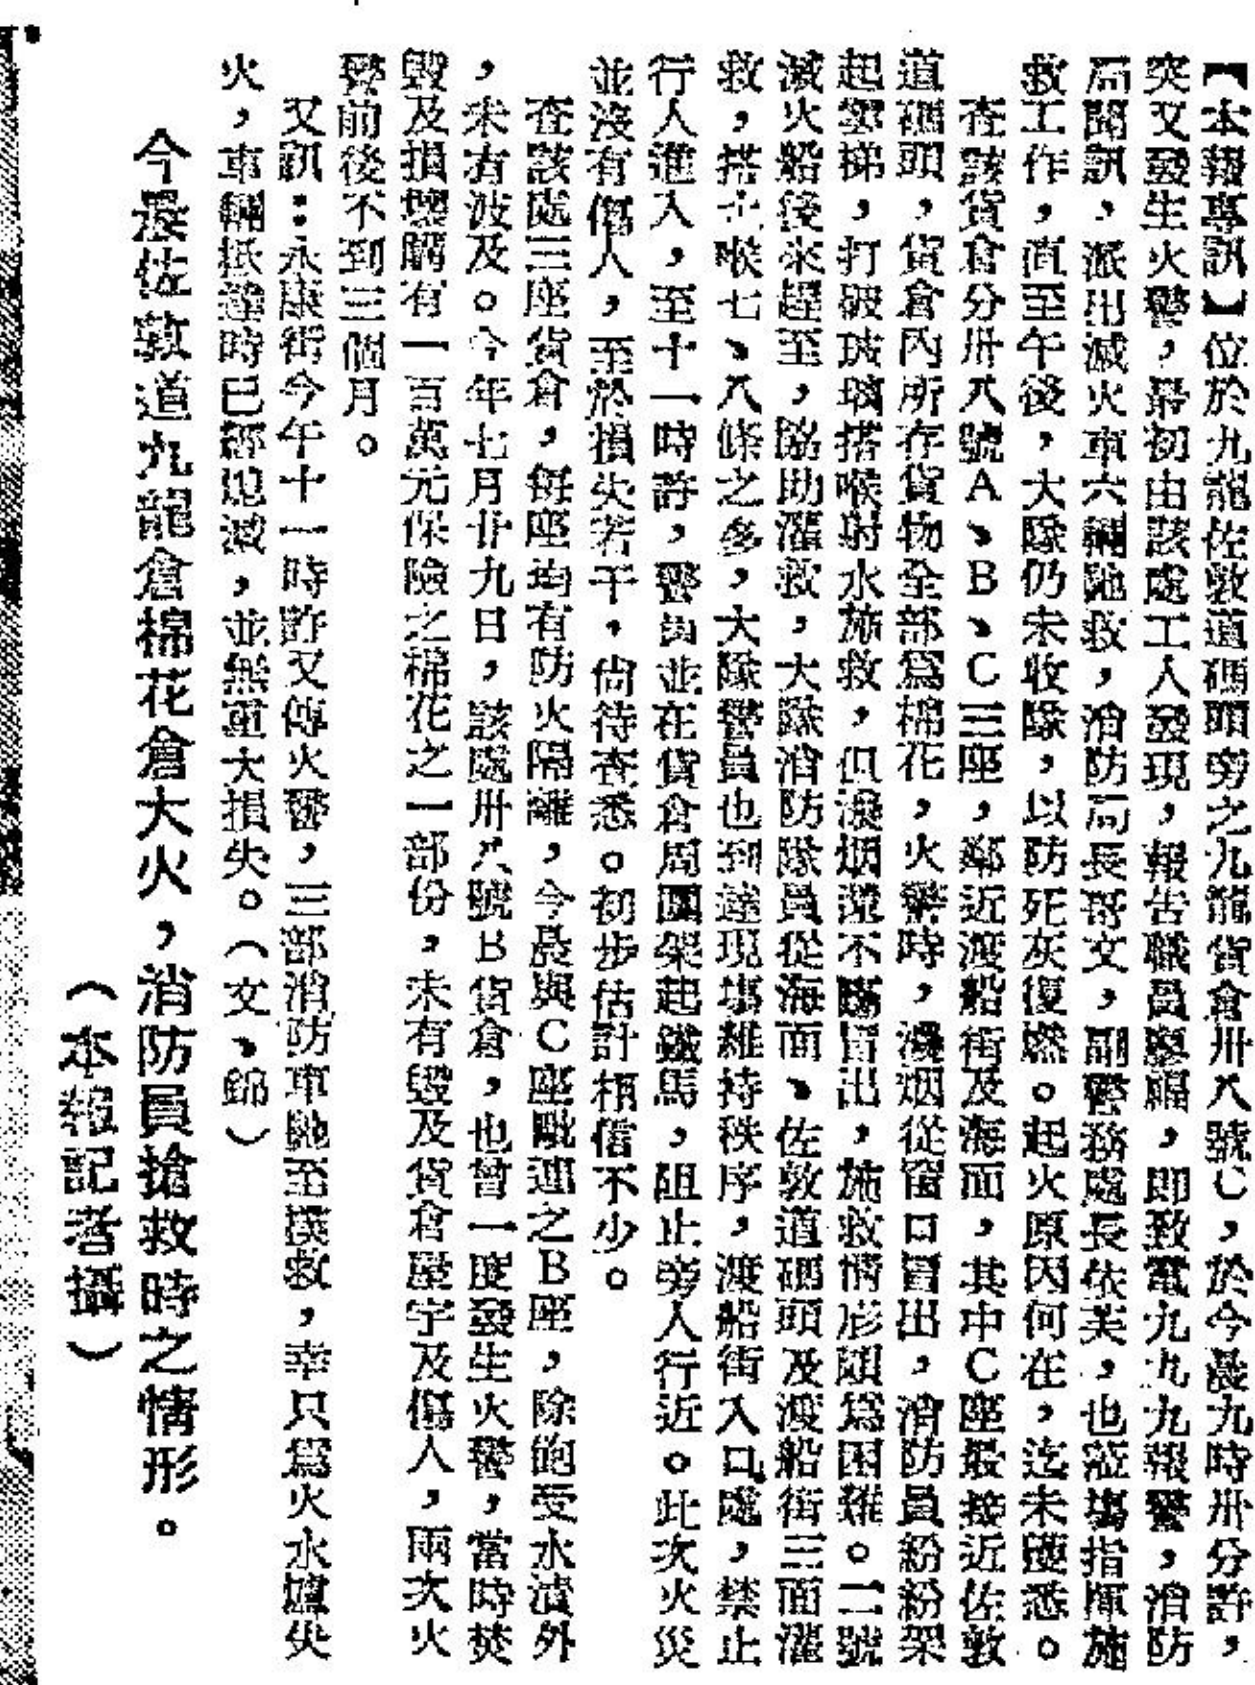 【本報專訊】位於九龍佐敦道碼頭旁之九龍貨倉卅八號C，於今晨九時卅分許，
突又發生火警，最初由該處工人發現，報告職員廖福，即致電九九九報警，消防
局聞訊，派出滅火車六輛馳救，消防局長哥文，副警務處長依芙，也蒞塲指揮施
救工作，直至午後，大隊仍未收隊，以防死灰復燃。起火原因何在，迄未獲悉。
查該貨倉分卅八號A、B、C三座，鄰近渡船街及海面，其中C座最接近佐敦
道碼頭，貨倉內所存貨物全部爲棉花，火警時，濃烟從窗口冒出，消防員紛紛架
起雲梯，打破玻璃搭喉射水施救，但濃烟滾不斷冒出，施救情形頗爲困難。二號
滅火船後來趕至，協助灌救，大隊消防隊員從海面、佐敦道碼頭及渡船街三面灌
救，搭上喉七、八條之多，大隊警員也到達現塲維持秩序，渡船街入口處，禁止
行人進入，至十一時許，警員並在貨倉周圍架起鐵馬，阻止旁人行近。此次火災
並沒有傷人，至於損失若干，尙待查悉。初步估計相信不少。
查該處三座貨倉，每座均有防火隔離，今晨與C座毗連之B座，除飽受水漬外
，未有波及。今年七月廿九日，該處卅八號B貨倉，也曾一度發生火警，當時焚
毀及損壞購有一百萬元保險之棉花之一部份，未有毀及貨倉屋宇及傷人，兩次火
警前後不到三個月。
又訊：永康街今午十一時許又傳火警，三部消防車馳至撲救，幸只爲火水爐失
火，車輛抵達時已經熄滅，並無重大損失。（文、錦）
今晨佐敦道九龍倉棉花倉大火，消防員搶救時之情形。
（本報記者攝）